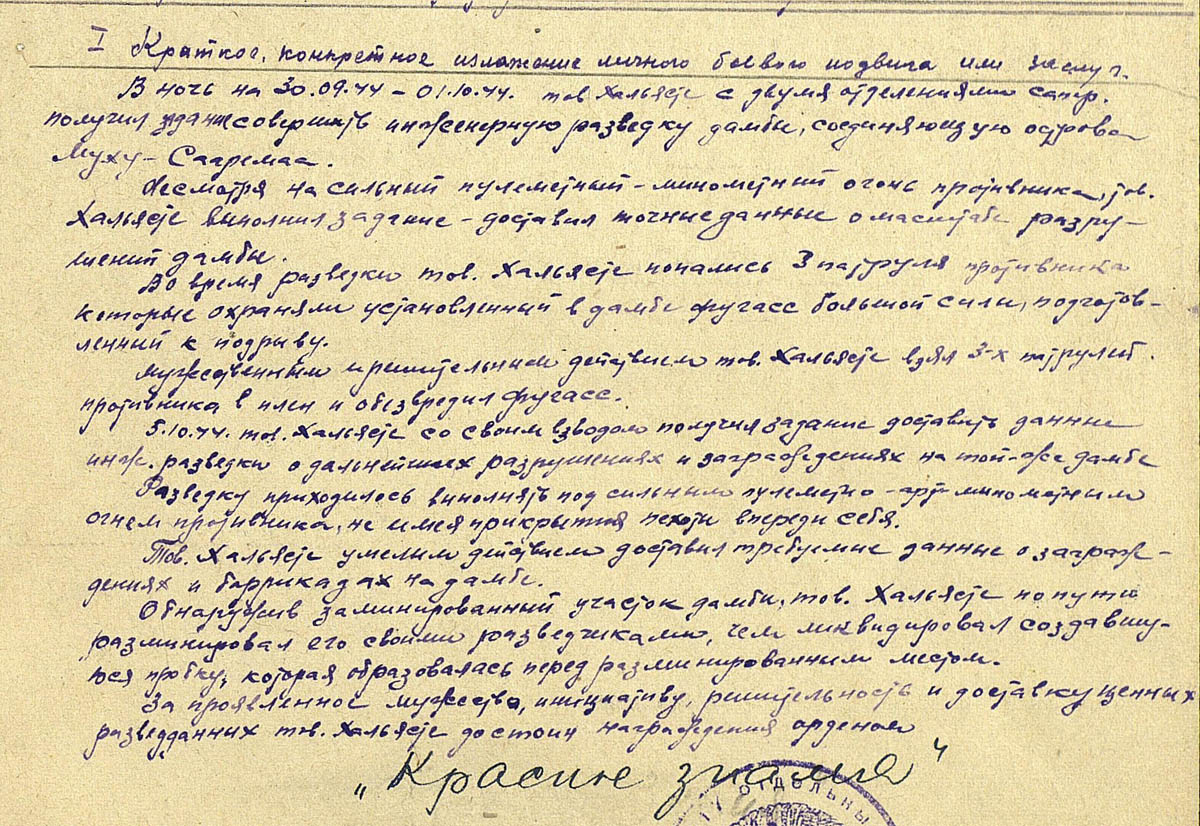 I Краткое, конкретное изложение личного боевого подвига или заслуг.
В ночь на 30.09.44 – 01.10.44. тов Хальясте с двумя отделениями сапер.
получил задание совершить инженерную разведку дамбы, соединяющую острова
Муху – Сааремаа.
Несмотря на сильный пулеметный – минометный огонь противника, тов.
Хальясте выполнил задание – доставил точные данные о масштабе разру–
шений дамбы.
Во время разведки тов. Хальясте попались 3 патруля противника
которые охраняли установленный в дамбе фугасс большой силы, подготов–
ленный к подрыву.
Мужественным и решительным действием тов. Хальясте взял 3-х патрулей.
противника в плен и обезвредил фугасс.
5.10.44. тов. Хальясте со своим взводом получил задание доставить данные
инж. разведки о дальнейших разрушениях и заграждениях на той-же дамбе
Разведку приходилось выполнять под сильным пулеметно – арт-минометным
огнем противника, не имея прикрытия пехоты впереди себя.
Тов. Хальясте умелым действием доставил требуемые данные о заграж–
дениях и баррикадах на дамбе.
Обнаружив заминированный участок дамбы, тов. Хальясте по пути
разминировал его своими разведчиками, чем ликвидировал создавшу–
юся пробку, которая образовалась перед разминированным местом.
За проявленное мужество, инициативу, решительность и доставку ценных
разведданных тов. Хальясте достоин награждения орденом
„Красное знамя"
ОТДЕЛЬНЫ